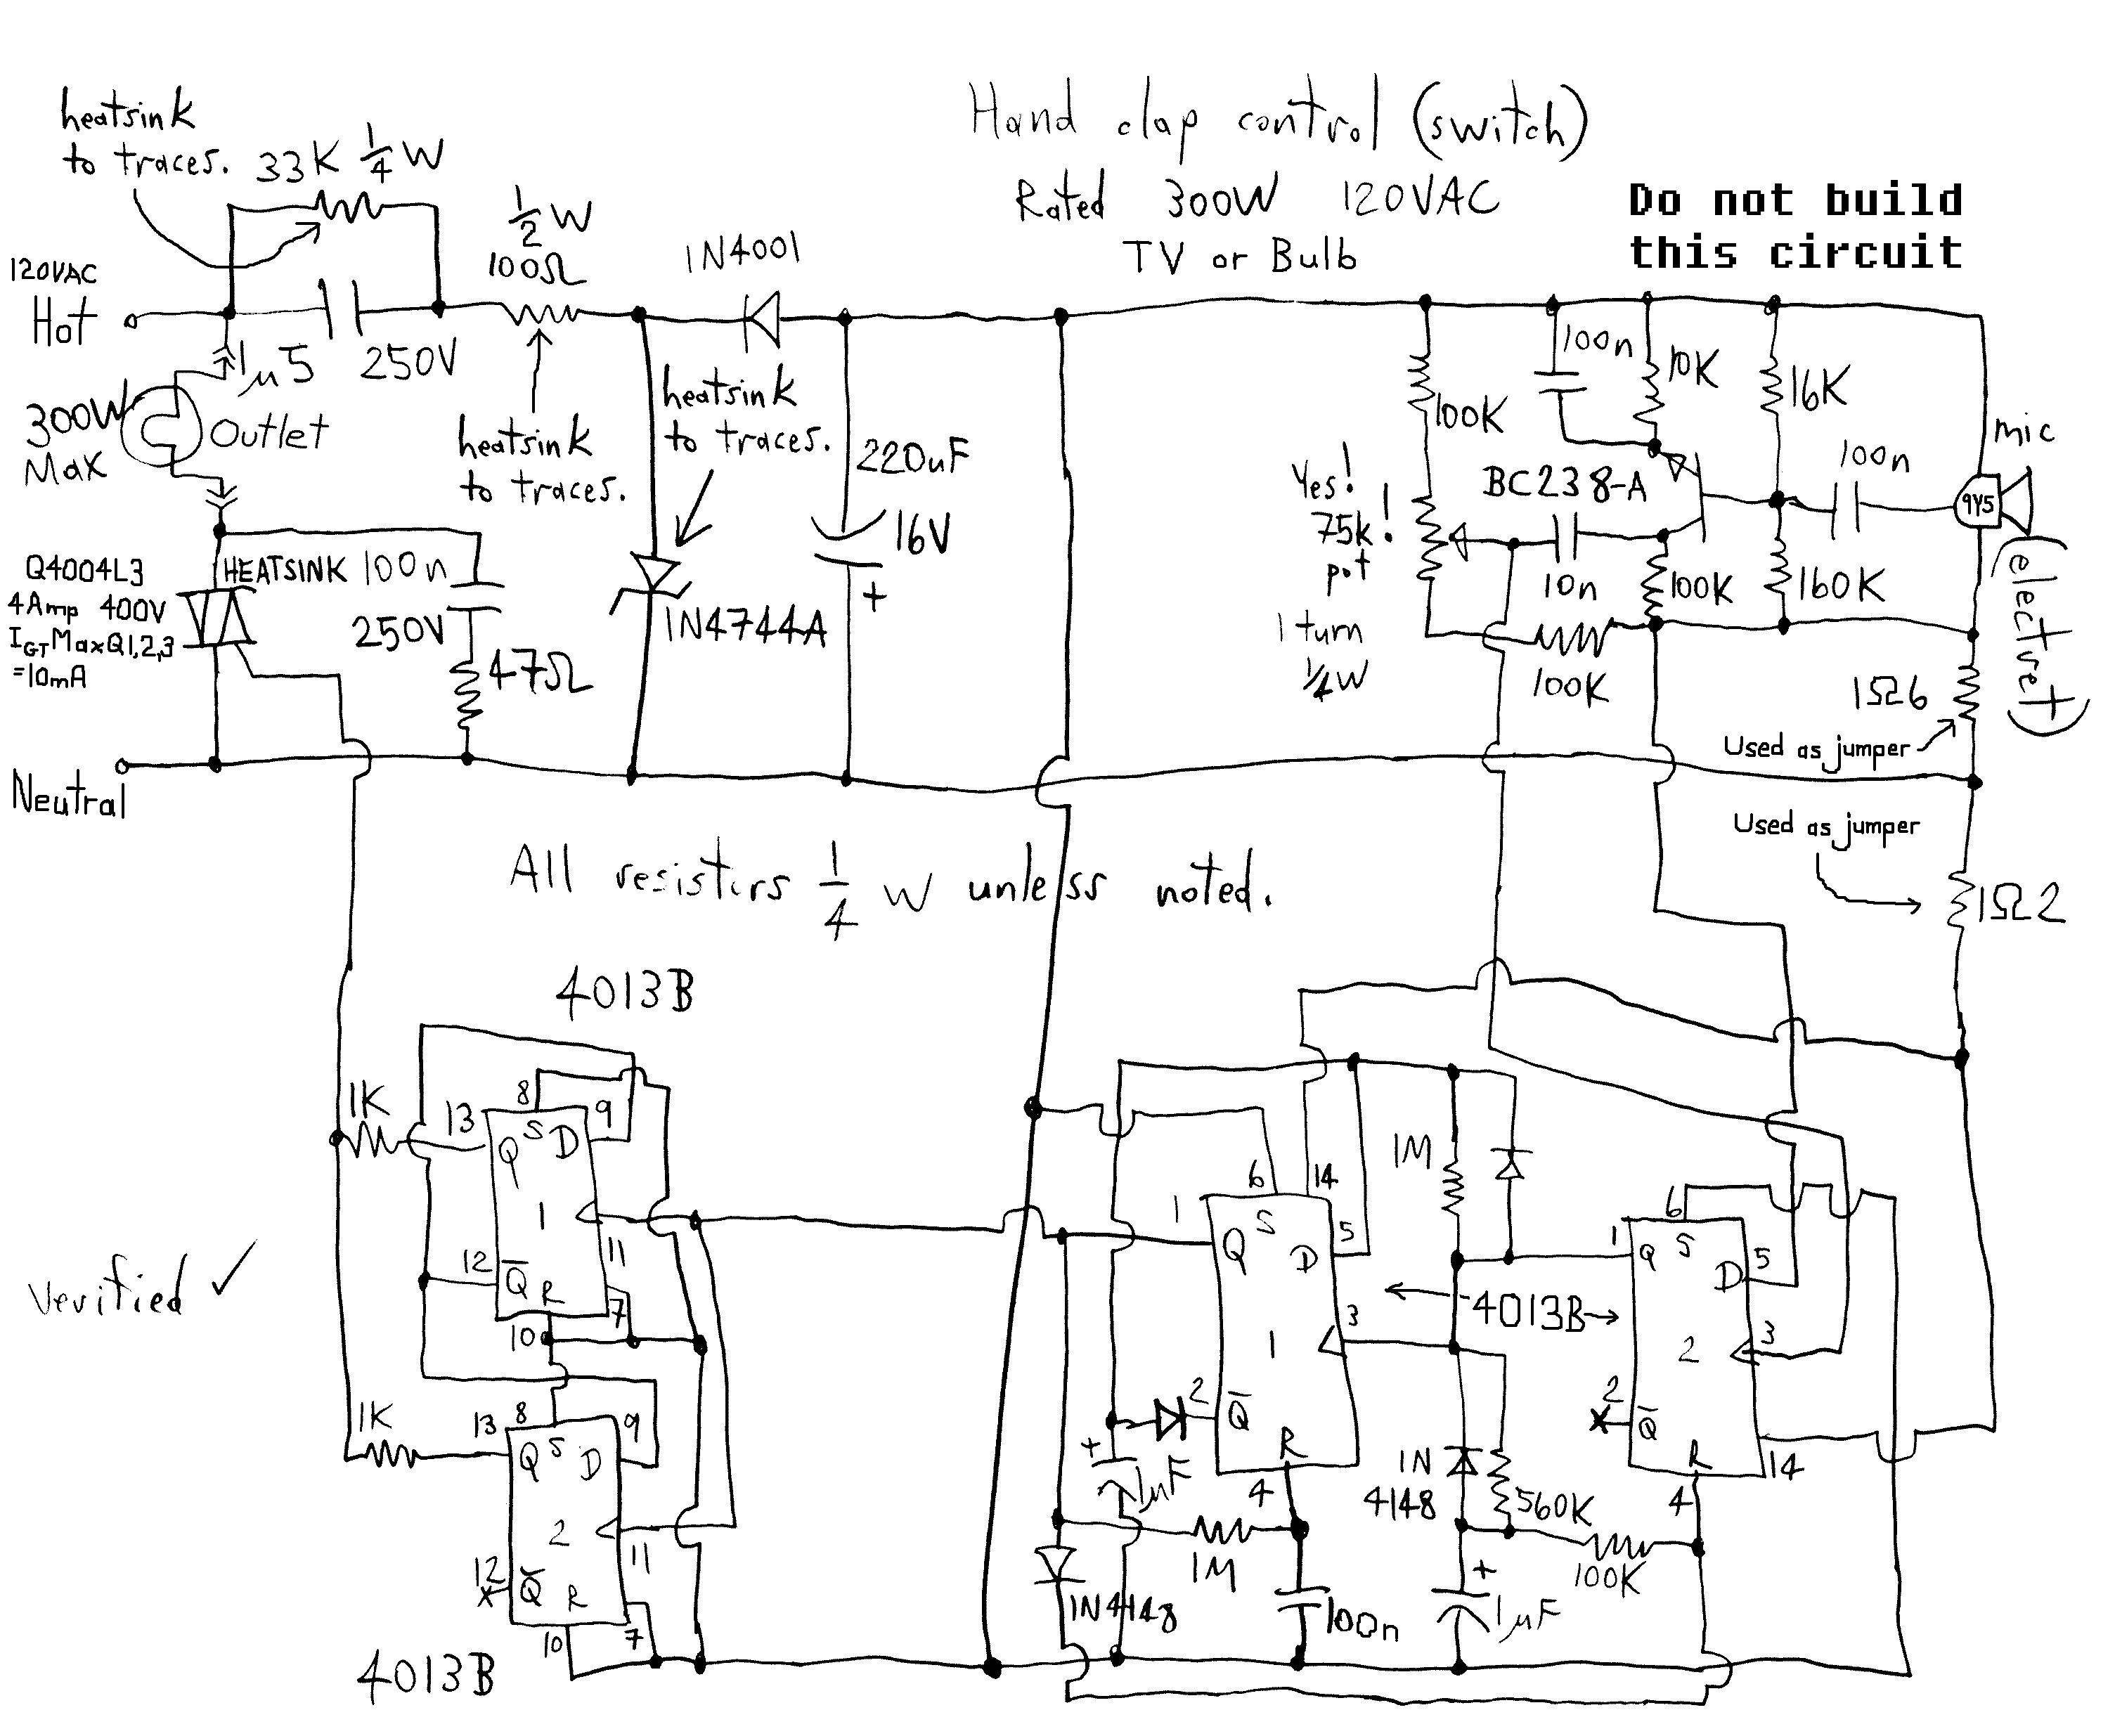 Hand clap control (switch)
Rated 300W 120VAC
TV or Bulb
Do not build
this circuit
heatsink
to traces.
33K 1/4 W
1/2 W
100Ω
1N4001
120VAC
Hot
1µ5
250V
300W
Max
Outlet
heatsink
to traces.
heatsink
to traces.
220uF
16V
+
Q4004L3
4Amp 400V
IGT MaxQ1,2,3
=10mA
HEATSINK
100n
250V
47Ω
1N4744A
Neutral
100K
100n
10K
16K
mic
Yes!
75k!
pot
1 turn
1/4W
BC238-A
100n
9Y5
(electret)
10n
100K
160K
100K
1Ω6
Used as jumper
Used as jumper
1Ω2
All resistors 1/4 W unless noted.
4013B
1K
13
8
9
Q
S
D
1
11
12
Q̅
R
10
7
Verified ✓
1K
13
8
9
Q
S
D
2
11
12
x
Q̅
R
10
7
4013B
1
6
14
Q
S
D
5
1
3
2
Q̅
R
4
1M
←4013B→
1
6
Q
S
D
5
2
3
2
x
Q̅
R
4
14
+
1µF
1N
4148
560K
100K
1M
1N4148
100n
+
1µF